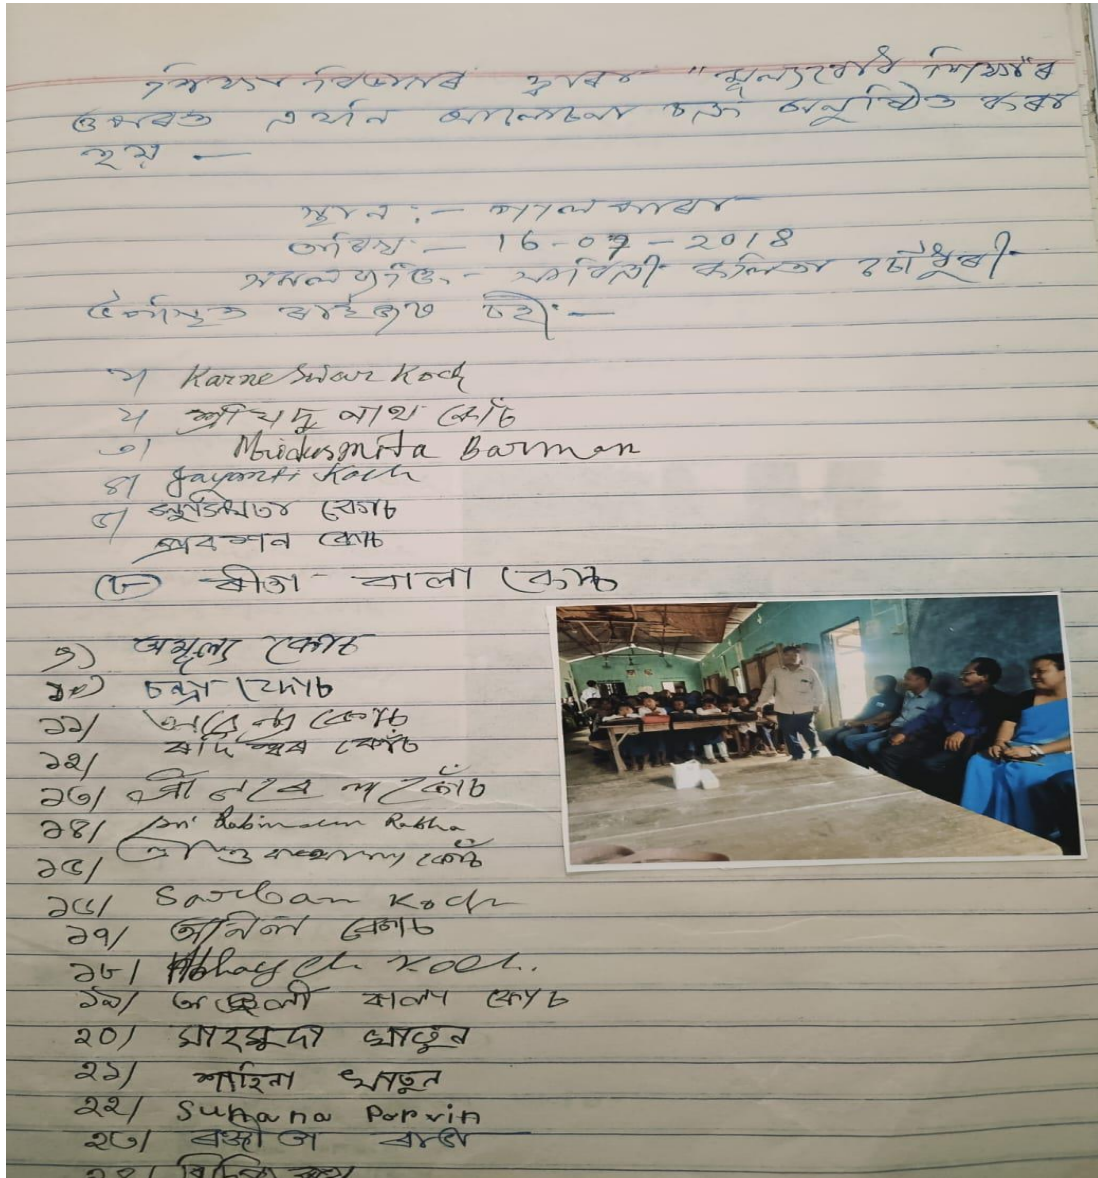 শিক্ষা বিভাগৰ দ্বাৰা "মূল্যবোধ শিক্ষা"ৰ
ওপৰত এখনি আলোচনা চক্ৰ অনুষ্ঠিত কৰা
হয় —
স্থান :— পাল পাৰা
তাৰিখ :— 16-07-2018
সমল ব্যক্তি :- কলিতা চৌধুৰী
উপস্থিত ৰাইজৰ চহী :—
১| Karneswar Koch
২| শ্ৰী যদু নাথ কোঁচ
৩| Mridusmita Barman
৪| Jayanti Koch
৫| কোচ
কোচ
(৮) ৰীতা বালা কোচ
৯) অমূল্য কোচ
১০) চন্দ্ৰা কোচ
১১| কোচ
১২| কোঁচ
১৩| শ্ৰী কোঁচ
১৪| Sri Rabha
১৫| শ্ৰী কোঁচ
১৬| Sarban Koch
১৭| অনিল কোচ
১৮| Abhay ch Koch.
১৯| বালা কোচ
২০) মাহমুদা খাতুন
২১) শাহিনা খাতুন
২২| Sumana Parvin
২৩| ৰঞ্জীতা ৰাভা
২৪|